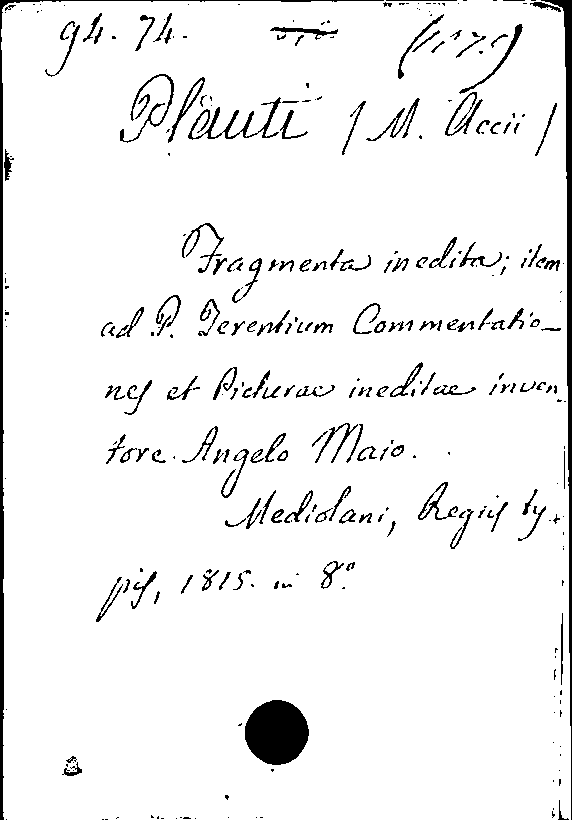 94. 74.
Plauti / M. Accii /
Fragmenta inedita; item
ad P. Terentium Commentatio-
nes et Picturae ineditae inven-
tore Angelo Maio.
Mediolani, Regiis ty-
pis, 1815. in 8.º